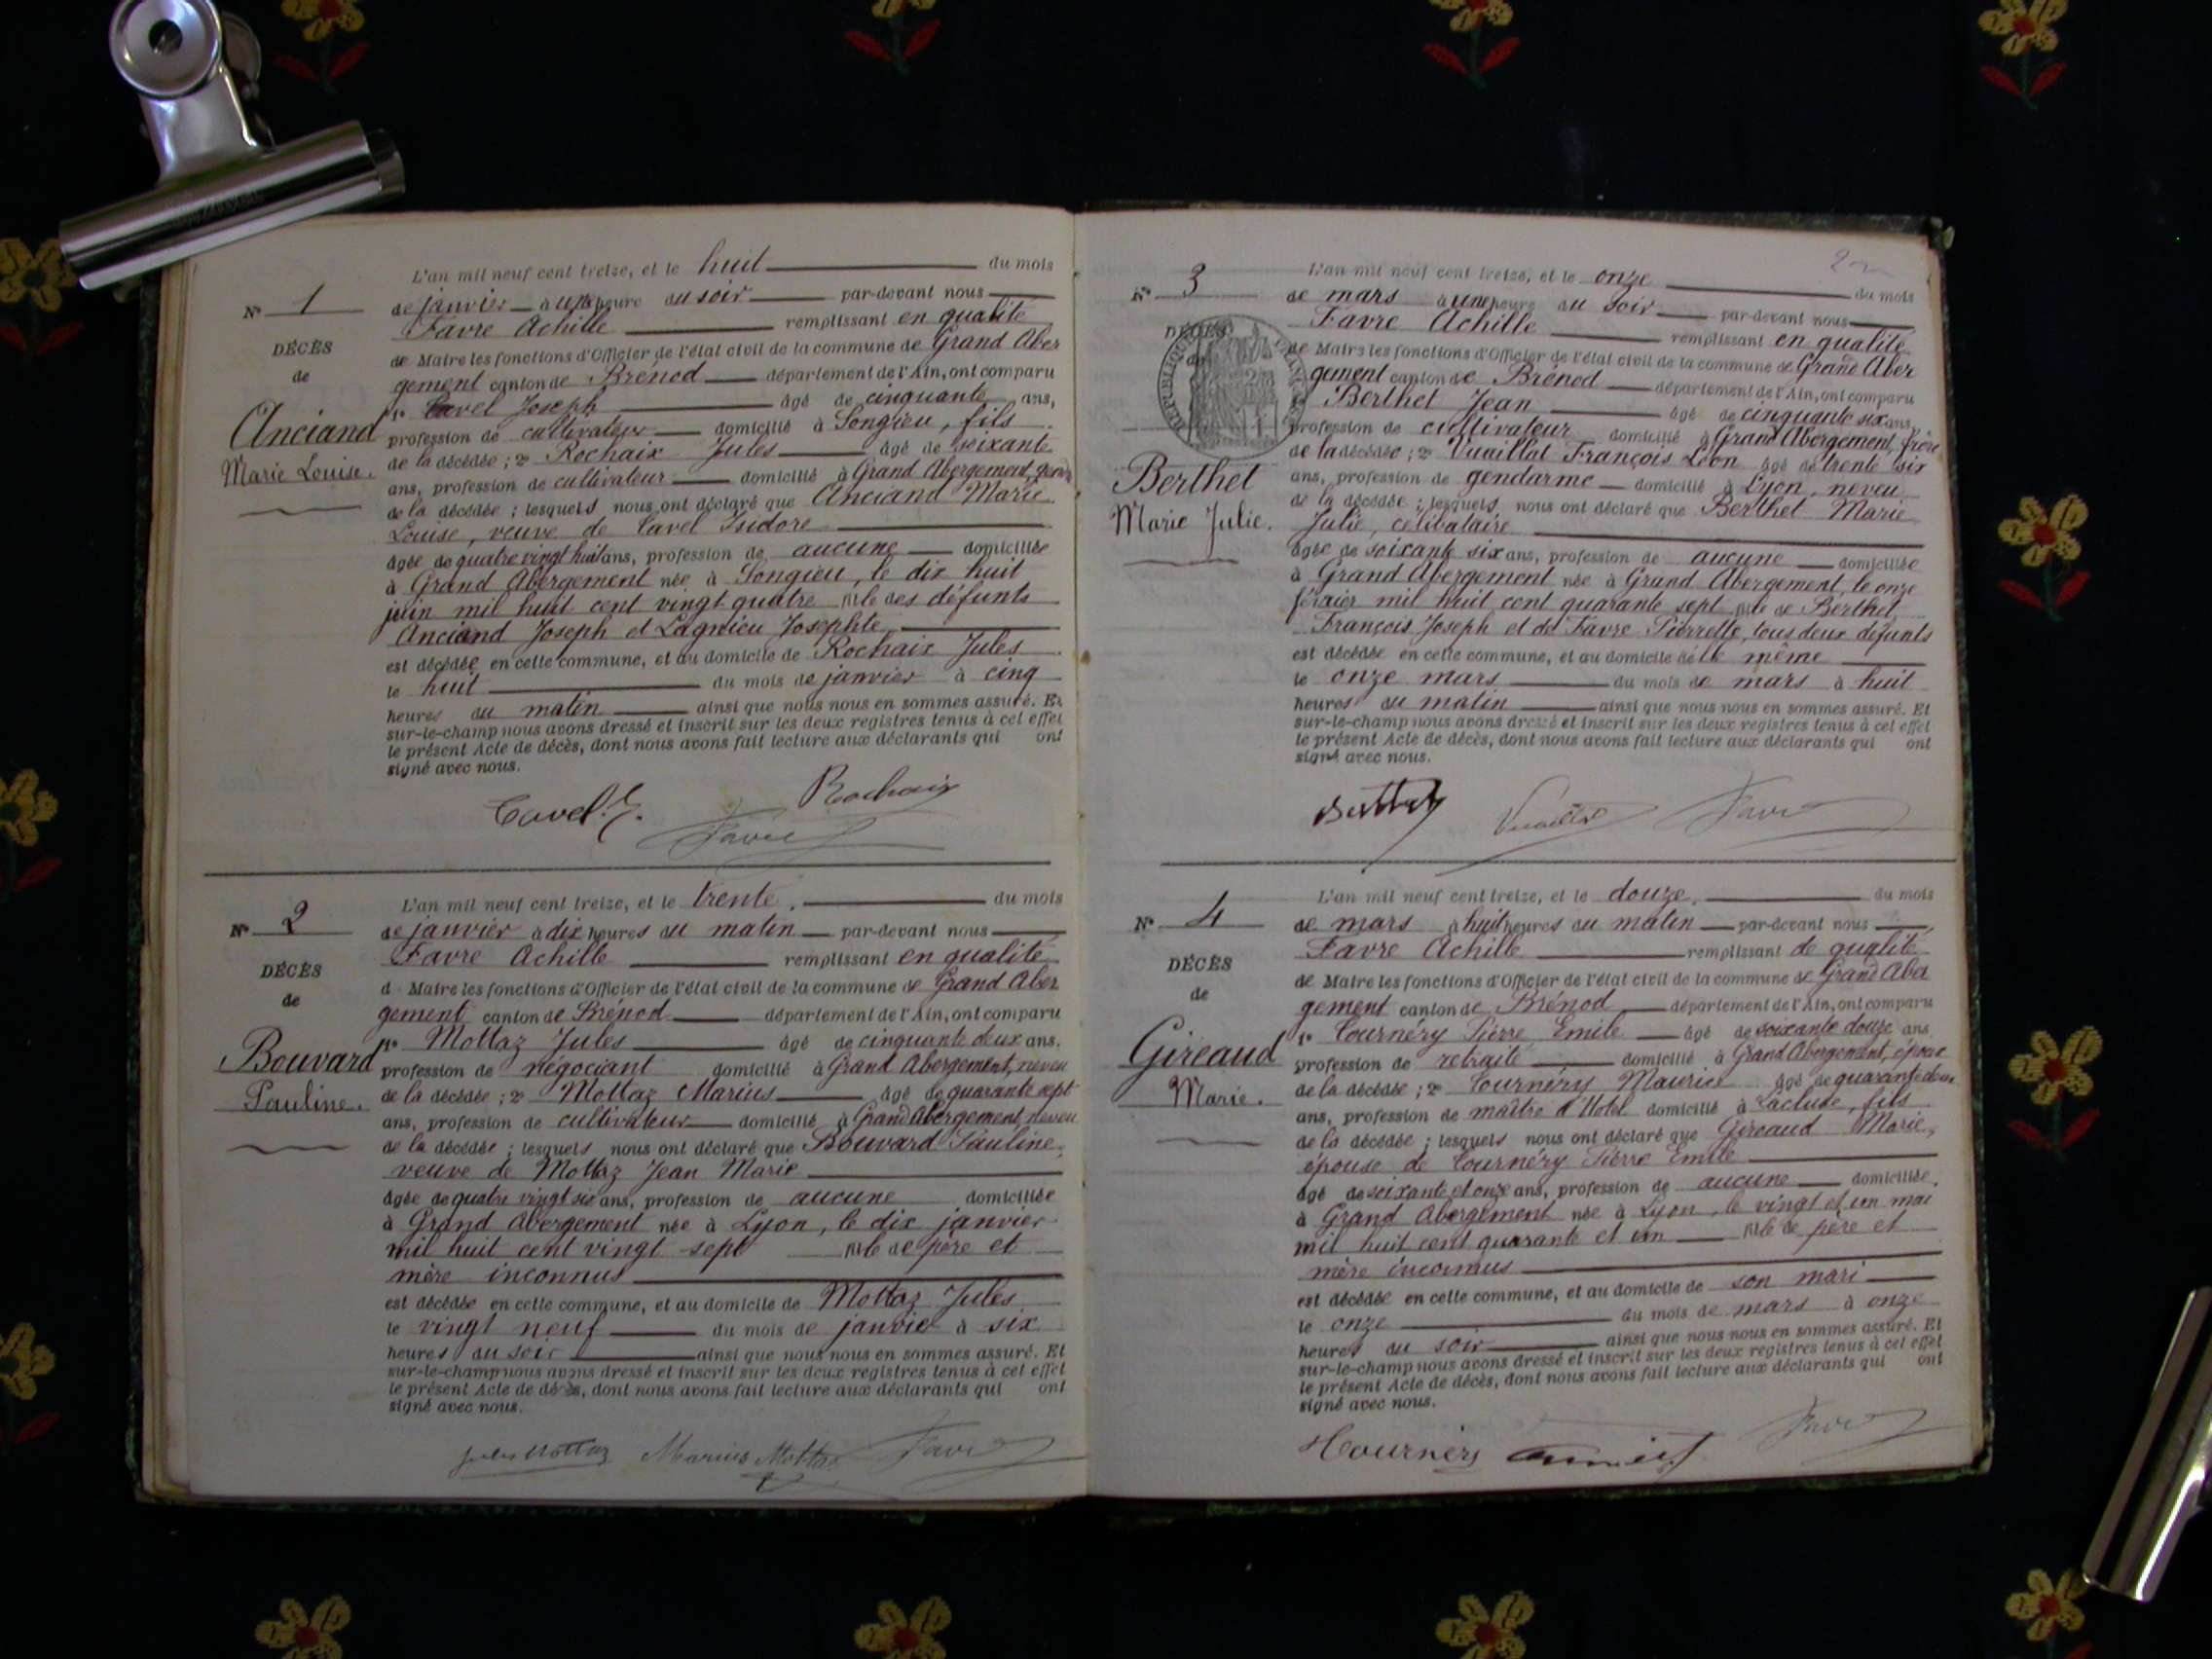 L'an mil neuf cent treize, et le huit du mois
N° 1
de janvier à une heure du soir par-devant nous
Favre Achille remplissant en qualité
DÉCÈS
de Maire les fonctions d'Officier de l'état civil de la commune de Grand Aber
de
gement canton de Brénod département de l'Ain, ont comparu
1° Cavel Joseph âgé de cinquante ans,
Anciand
profession de cultivateur domicilié à Songieu, fils
Marie Louise.
de la décédée ; 2° Rochaix Jules âgé de soixante
ans, profession de cultivateur domicilié à Grand Abergement, gendre
de la décédée ; lesquels nous ont déclaré que Anciand Marie
Louise, veuve de Cavel Isidore
âgée de quatre vingt huit ans, profession de aucune domiciliée
à Grand Abergement née à Songieu, le dix huit
juin mil huit cent vingt quatre fille des défunts
Anciand Joseph et Lagnieu Josephte
est décédée en cette commune, et au domicile de Rochaix Jules
le huit du mois de janvier à cinq
heures du matin ainsi que nous nous en sommes assuré. Et
sur-le-champ nous avons dressé et inscrit sur les deux registres tenus à cet effet
le présent Acte de décès, dont nous avons fait lecture aux déclarants qui ont
signé avec nous.
Cavel. J. Rochaix
Favre
L'an mil neuf cent treize, et le trente. du mois
N° 2
de janvier à dix heures du matin par-devant nous
Favre Achille remplissant en qualité
DÉCÈS
d Maire les fonctions d'Officier de l'état civil de la commune de Grand Aber
de
gement canton de Brénod département de l'Ain, ont comparu
1° Mottaz Jules âgé de cinquante deux ans,
Bouvard
profession de négociant domicilié à Grand Abergement, neveu
Pauline.
de la décédée ; 2° Mottaz Marius âgé de quarante sept
ans, profession de cultivateur domicilié à Grand Abergement, neveu
de la décédée ; lesquels nous ont déclaré que Bouvard Pauline,
veuve de Mottaz Jean Marie
âgée de quatre vingt six ans, profession de aucune domiciliée
à Grand Abergement née à Lyon, le dix janvier
mil huit cent vingt sept fille de père et
mère inconnus
est décédée en cette commune, et au domicile de Mottaz Jules
le vingt neuf du mois de janvier à six
heures du soir ainsi que nous nous en sommes assuré. Et
sur-le-champ nous avons dressé et inscrit sur les deux registres tenus à cet effet
le présent Acte de décès, dont nous avons fait lecture aux déclarants qui ont
signé avec nous.
Jules Mottaz Marius Mottaz Favre
L'an mil neuf cent treize, et le onze du mois
N° 3
de mars à une heure du soir par-devant nous
Favre Achille remplissant en qualité
DÉCÈS
de Maire les fonctions d'Officier de l'état civil de la commune de Grand Aber
gement canton de Brénod département de l'Ain, ont comparu
Berthet Jean âgé de cinquante six ans,
profession de cultivateur domicilié à Grand Abergement, frère
de la décédée ; 2° Vuaillat François Léon âgé de trente six
Berthet
ans, profession de gendarme domicilié à Lyon, neveu
Marie Julie.
de la décédée ; lesquels nous ont déclaré que Berthet Marie
Julie, célibataire
âgée de soixante six ans, profession de aucune domiciliée
à Grand Abergement née à Grand Abergement, le onze
février mil huit cent quarante sept fille de Berthet
François Joseph et de Favre Pierrette, tous deux défunts
est décédée en cette commune, et au domicile de le même
le onze mars du mois de mars à huit
heures du matin ainsi que nous nous en sommes assuré. Et
sur-le-champ nous avons dressé et inscrit sur les deux registres tenus à cet effet
le présent Acte de décès, dont nous avons fait lecture aux déclarants qui ont
signé avec nous.
Berthet Vuaillat Favre
L'an mil neuf cent treize, et le douze. du mois
N° 4
de mars à huit heures du matin par-devant nous
Favre Achille remplissant de qualité
DÉCÈS
de Maire les fonctions d'Officier de l'état civil de la commune de Grand Aber
de
gement canton de Brénod département de l'Ain, ont comparu
1° Tournéry Pierre Emile âgé de soixante douze ans
Gireaud
profession de retraité domicilié à Grand Abergement, époux
Marie.
de la décédée ; 2° Tournéry Maurice âgé de quarante deux
ans, profession de maître d'Hotel domicilié à Lacluse, fils
de la décédée ; lesquels nous ont déclaré que Gireaud Marie,
épouse de Tournéry Pierre Emile
âgé de soixante et onze ans, profession de aucune domiciliée.
à Grand Abergement née à Lyon, le vingt et un mai
mil huit cent quarante et un fille de père et
mère inconnus
est décédée en cette commune, et au domicile de son mari
le onze du mois de mars à onze
heures du soir ainsi que nous nous en sommes assuré. Et
sur-le-champ nous avons dressé et inscrit sur les deux registres tenus à cet effet
le présent Acte de décès, dont nous avons fait lecture aux déclarants qui ont
signé avec nous.
Tournéry Favre